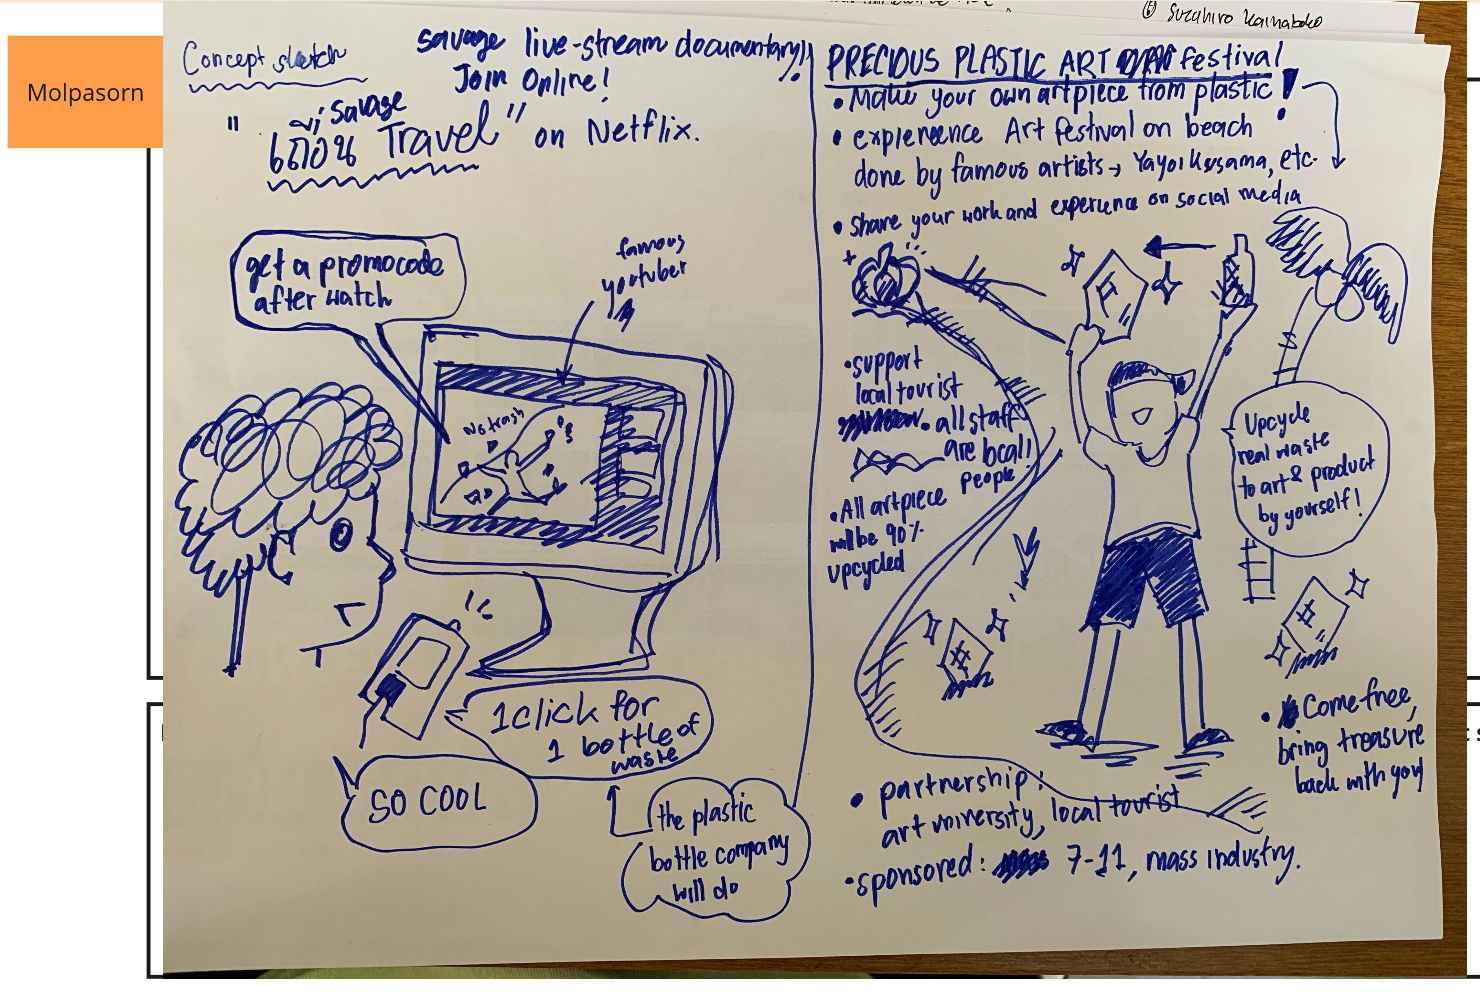 Molpasorn
⑥ Suzuhiro Kamaboko
Concept sketch
savage live-stream documentary!!
Join Online!
savage
"เถื่อน Travel" on Netflix.
get a promocode
after watch
famous
youtuber
No trash
1 click for
1 bottle of
waste
SO COOL
the plastic
bottle company
will do
PRECIOUS PLASTIC ART festival
• Make your own artpiece from plastic!
• expiereence Art Festival on beach
done by famous artists → Yayoi Kusama, etc.
• share your work and experience on social media
• support
local tourist
• all staff
are local!
people
• All artpiece
will be 90%
upcycled
Upcycle
real waste
to art & product
by yourself!
• Come free,
bring treasure
back with you!
• partnership:
art university, local tourist
• sponsored: 7-11, mass industry.